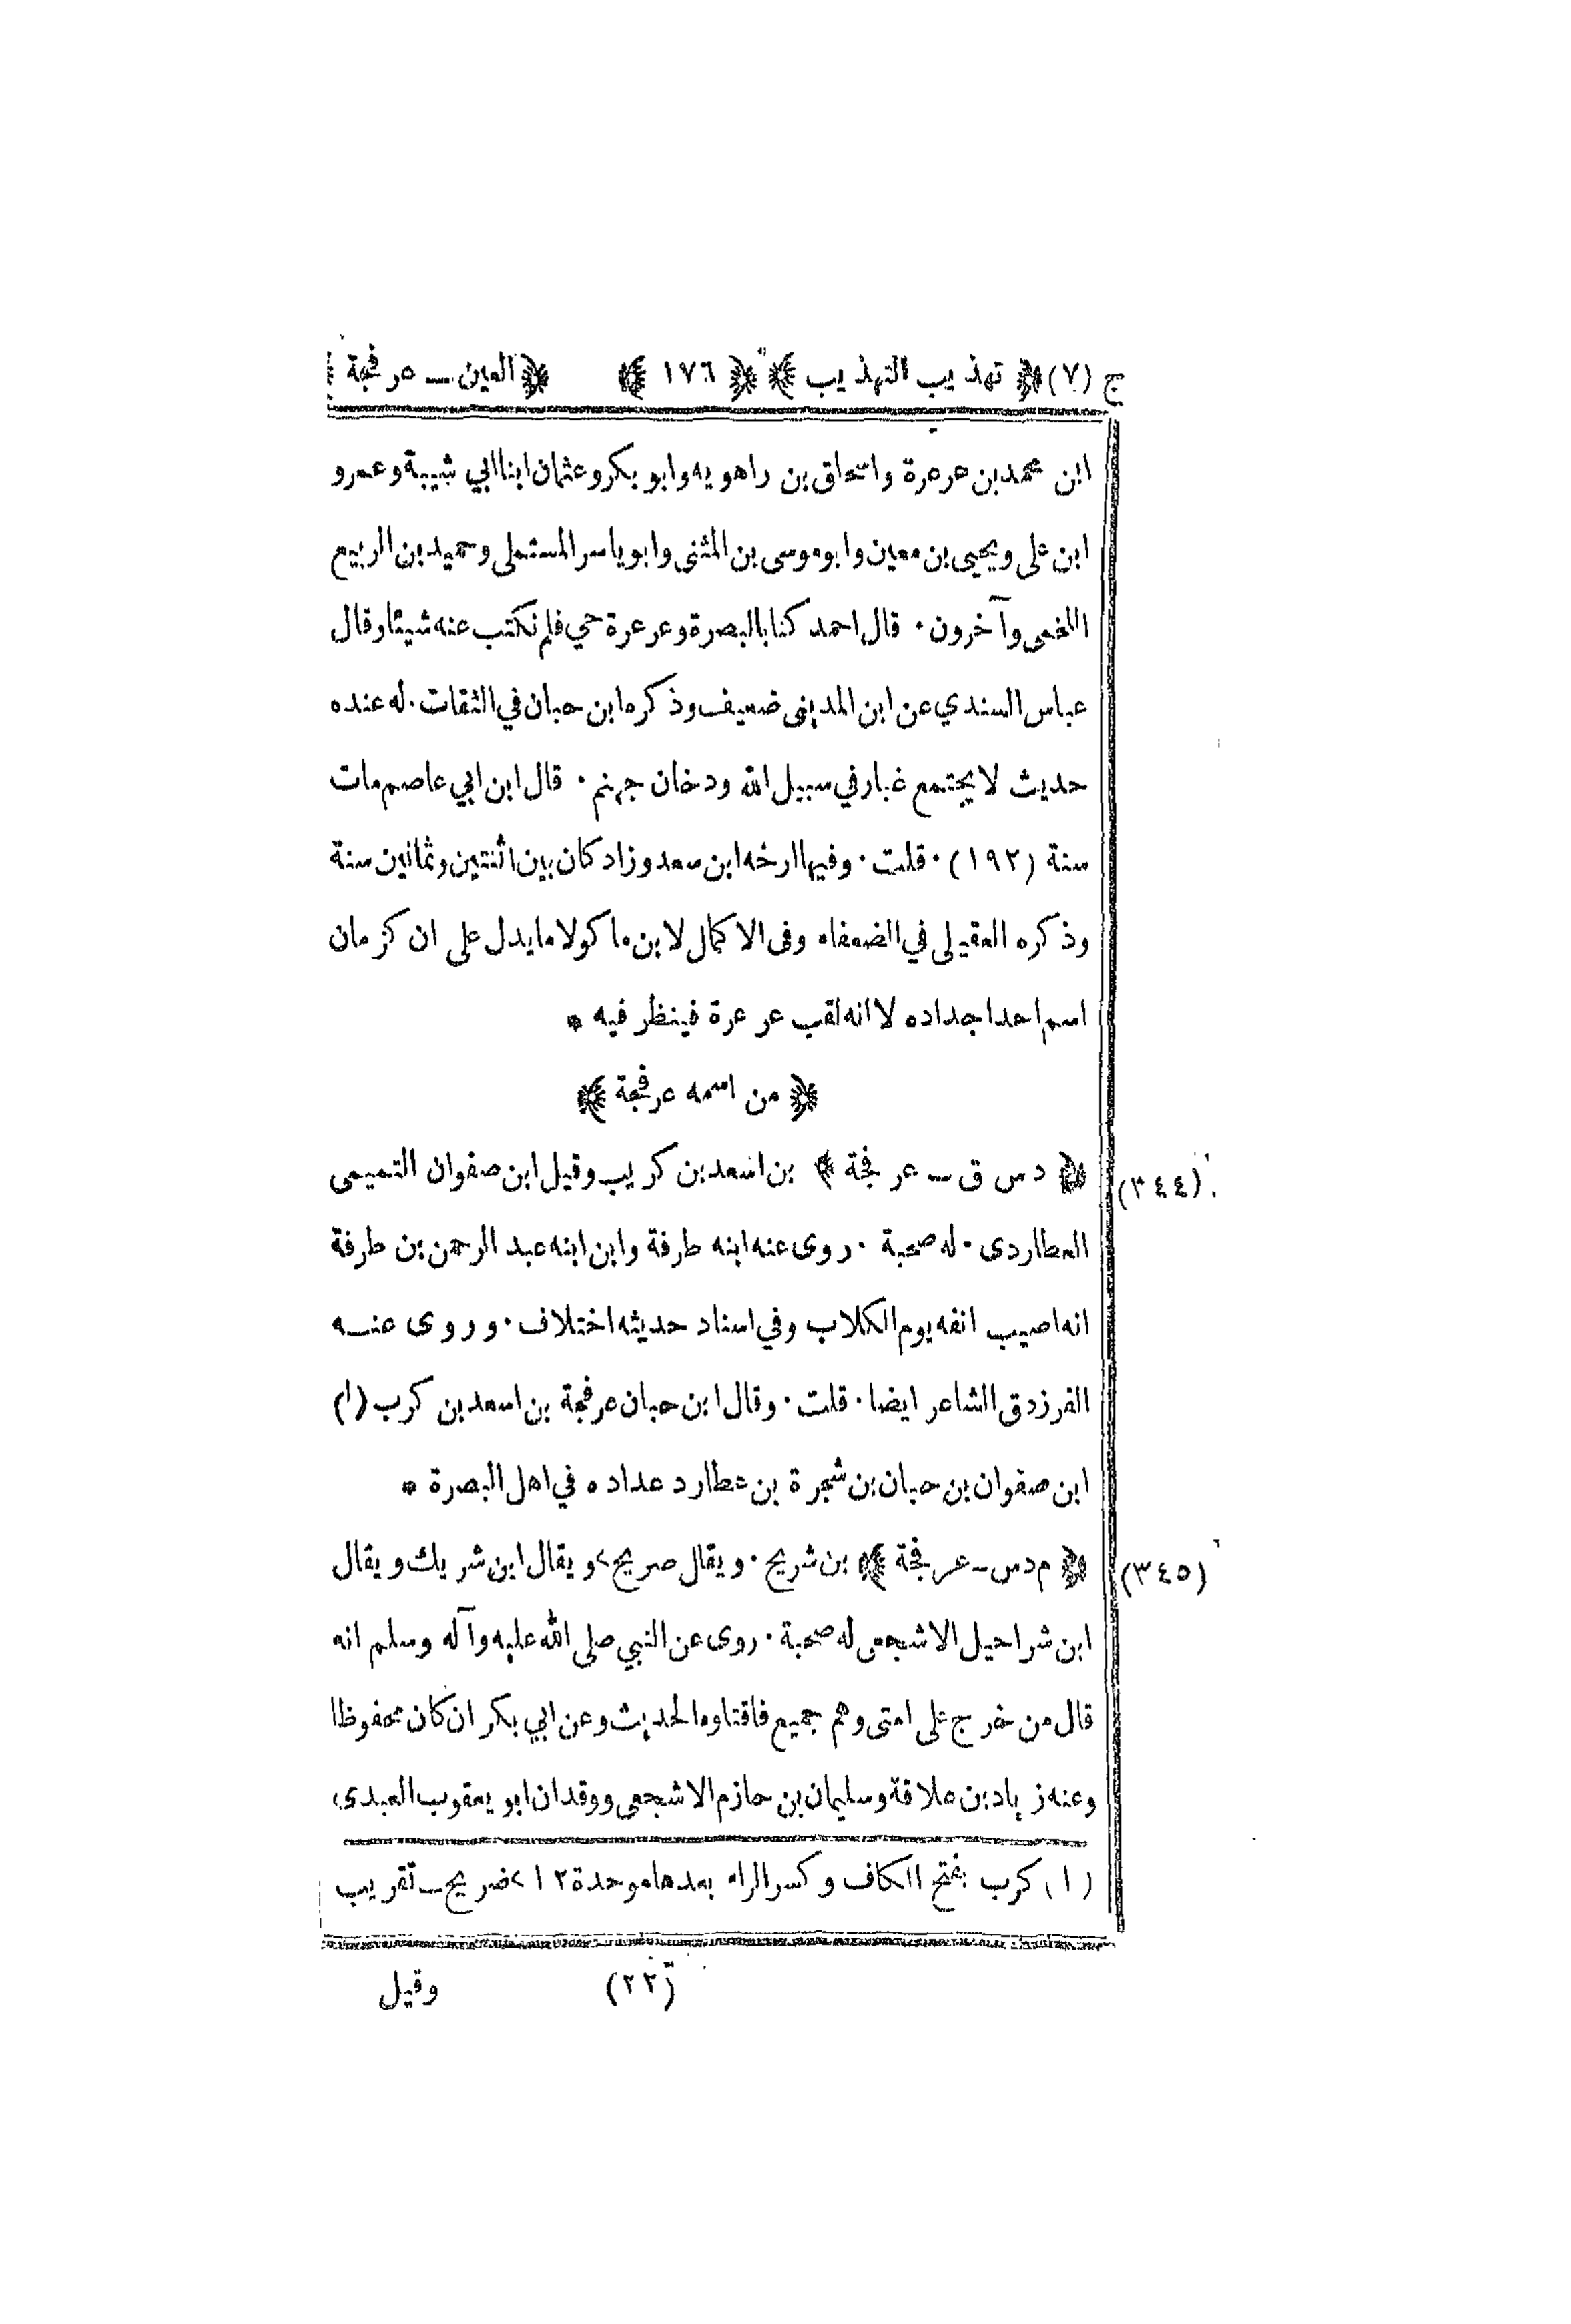 ج (٧) ﴿ تهذيب التهذيب ﴾ ﴿ ١٧٦ ﴾ ﴿ العين ـ عرفجة
ابن محمد بن عرعرة واسحاق بن راهويه وابو بكر وعثمان ابنا ابي شيبة وعمرو
ابن علي ويحيى بن معين وابو موسى بن المثنى وابو ياسر المستملى وحميد بن الربيع
اللخمى وآخرون · قال احمد كنا بالبصرة وعرعرة حي فلم نكتب عنه شيئا وقال
عباس السندي عن ابن المديني ضعيف وذكره ابن حبان في الثقات · له عنده
حديث لا يجتمع غبار في سبيل الله ودخان جهنم · قال ابن ابي عاصم مات
سنة (١٩٢) · قلت · وفيها ارخه ابن سعد وزاد كان بين اثنتين وثمانين سنة
وذكره العقيلى في الضعفاء وفى الاكمال لابن ماكولا مايدل على ان كزمان
اسم احد اجداده لا انه لقب عرعرة فينظر فيه *
﴿ من اسمه عرفجة ﴾
(٣٤٤) ﴿ د س ق ـ عرفجة ﴾ بن اسعد بن كريب وقيل ابن صفوان التميمى
العطاردى · له صحبة · روى عنه ابنه طرفة وابن ابنه عبد الرحمن بن طرفة
انه اصيب انفه يوم الكلاب وفي اسناد حديثه اختلاف · وروى عنه
الفرزدق الشاعر ايضا · قلت · وقال ابن حبان عرفجة بن اسعد بن كرب (١)
ابن صفوان بن حبان بن شجرة بن عطارد عداده في اهل البصرة *
(٣٤٥) ﴿ م د س ـ عرفجة ﴾ بن شريح · ويقال صريح > ويقال ابن شريك ويقال
ابن شراحيل الاشجعى له صحبة · روى عن النبي صلى الله عليه وآله وسلم انه
قال من خرج على امتى وهم جميع فاقتلوه الحديث وعن ابي بكر ان كان محفوظا
وعنه زياد بن علاقة وسليمان بن حازم الاشجعى ووقدان ابو يعقوب العبدى
(١) كرب بفتح الكاف وكسر الراء بعدها موحدة ١٢ > ضريح ـ تقريب
(٢٢) وقيل